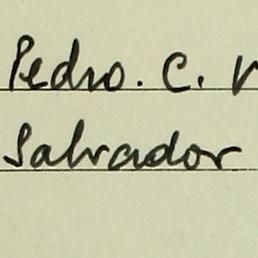 Pedro. C.
Salvador